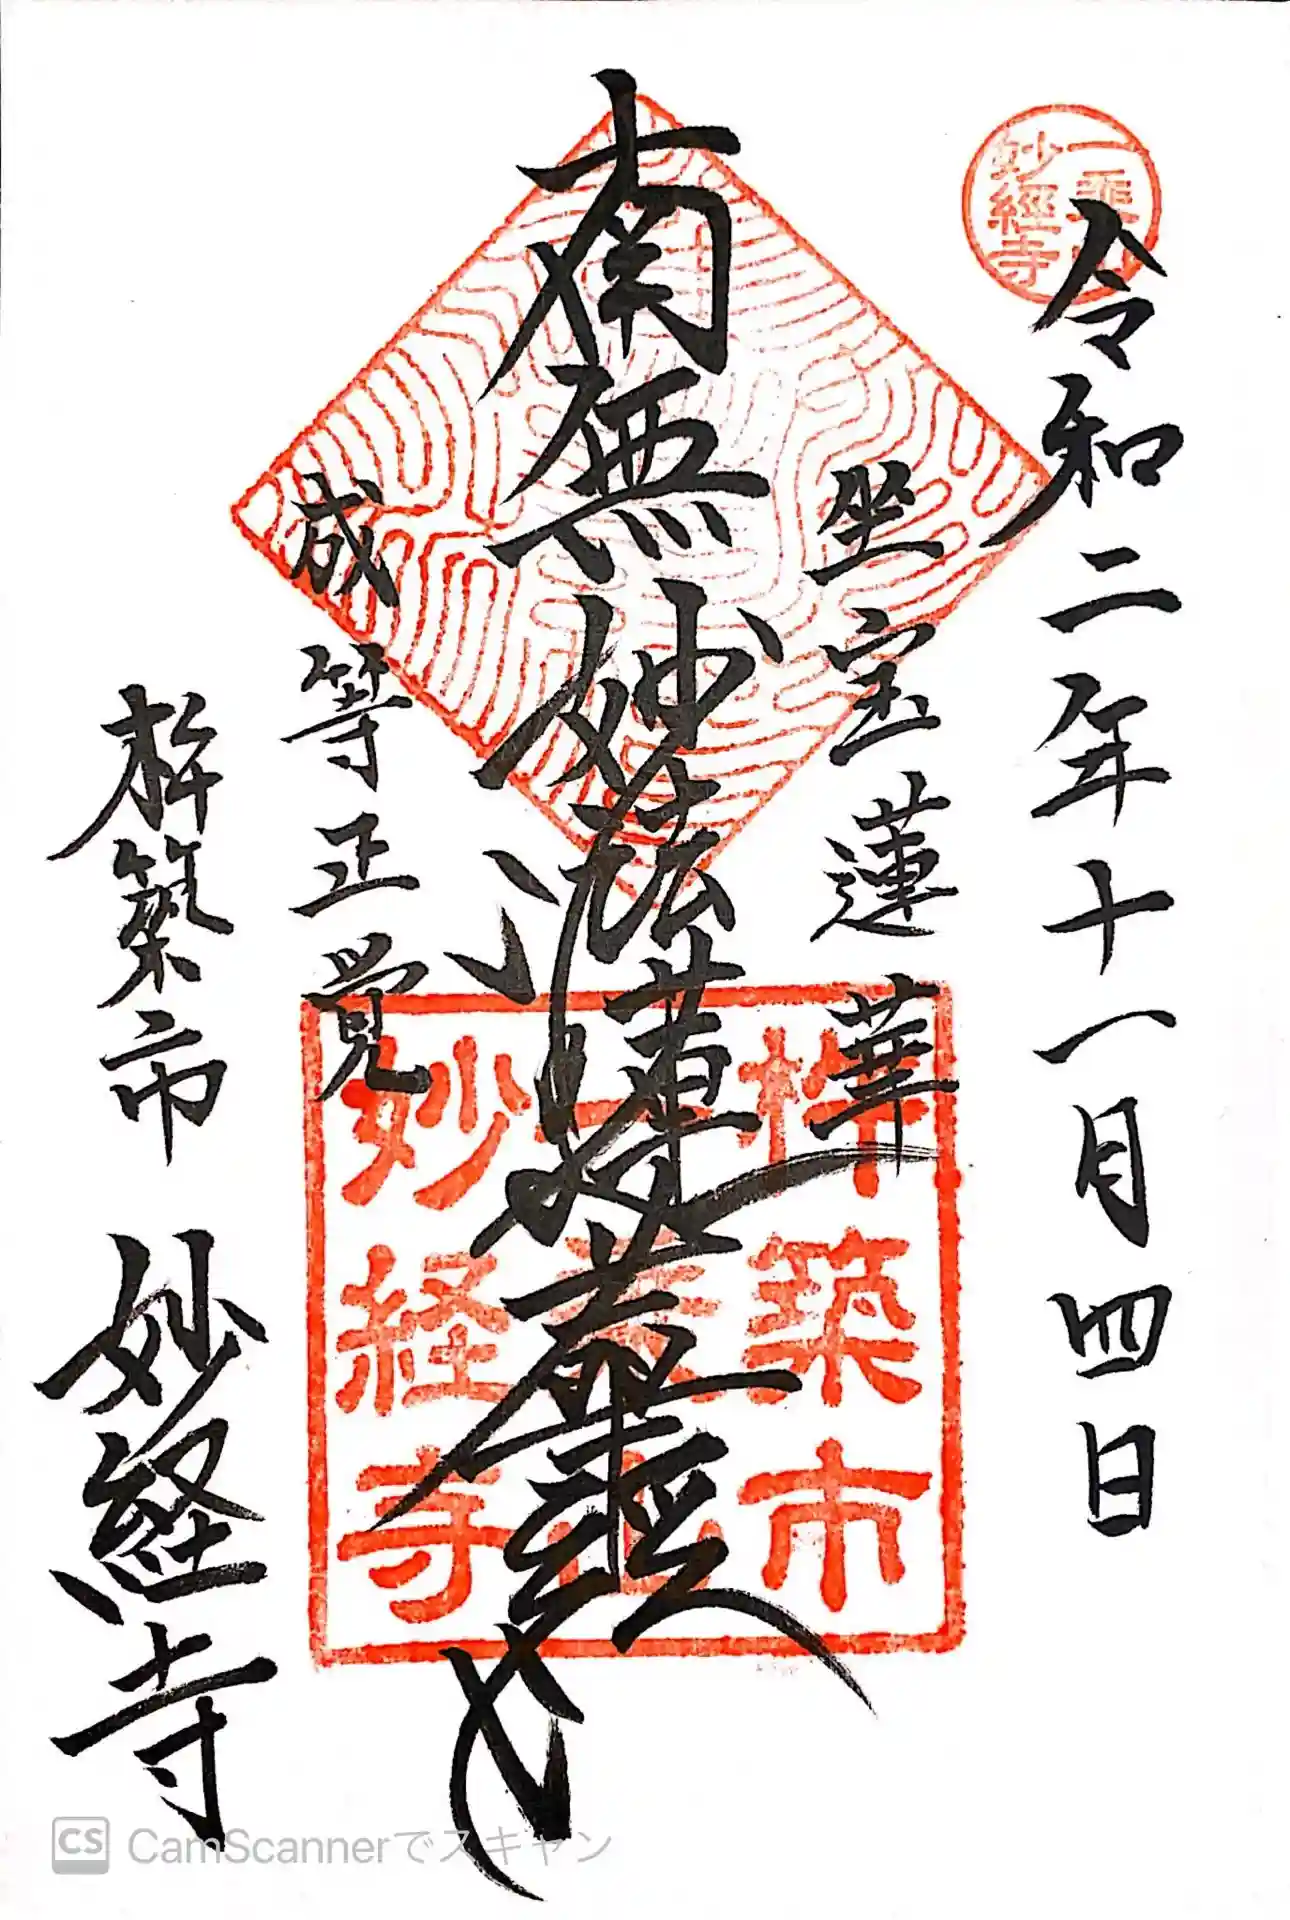 令和二年十一月四日
一乗山
妙經寺
坐宝蓮華
南無妙法蓮華経
成等正覚
杵築市 妙経寺
杵築市
一乗山
妙経寺
CamScannerでスキャン